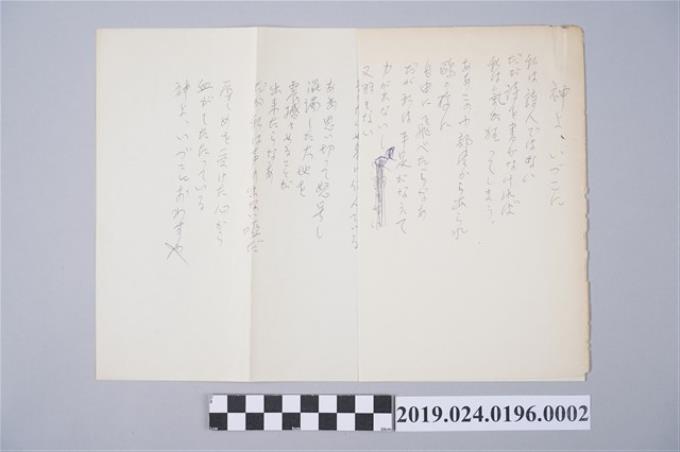 神よ、いづこに
私は詩人ではない
だが詩を書かなければ
私は気が狂ってしまう。
ああこの部屋から出られ
鴎の様に
自由に飛べたらなあ
だが私は手足がなえて
力がないし
又羽もない
ああ思い切って怒号し
混濁した大地を
震撼させることが
出来たらなあ
だが私は声の出ない
辱しめを受けた心から
血がしたたっている
神よ、いづこにおわすや
2019.024.0196.0002